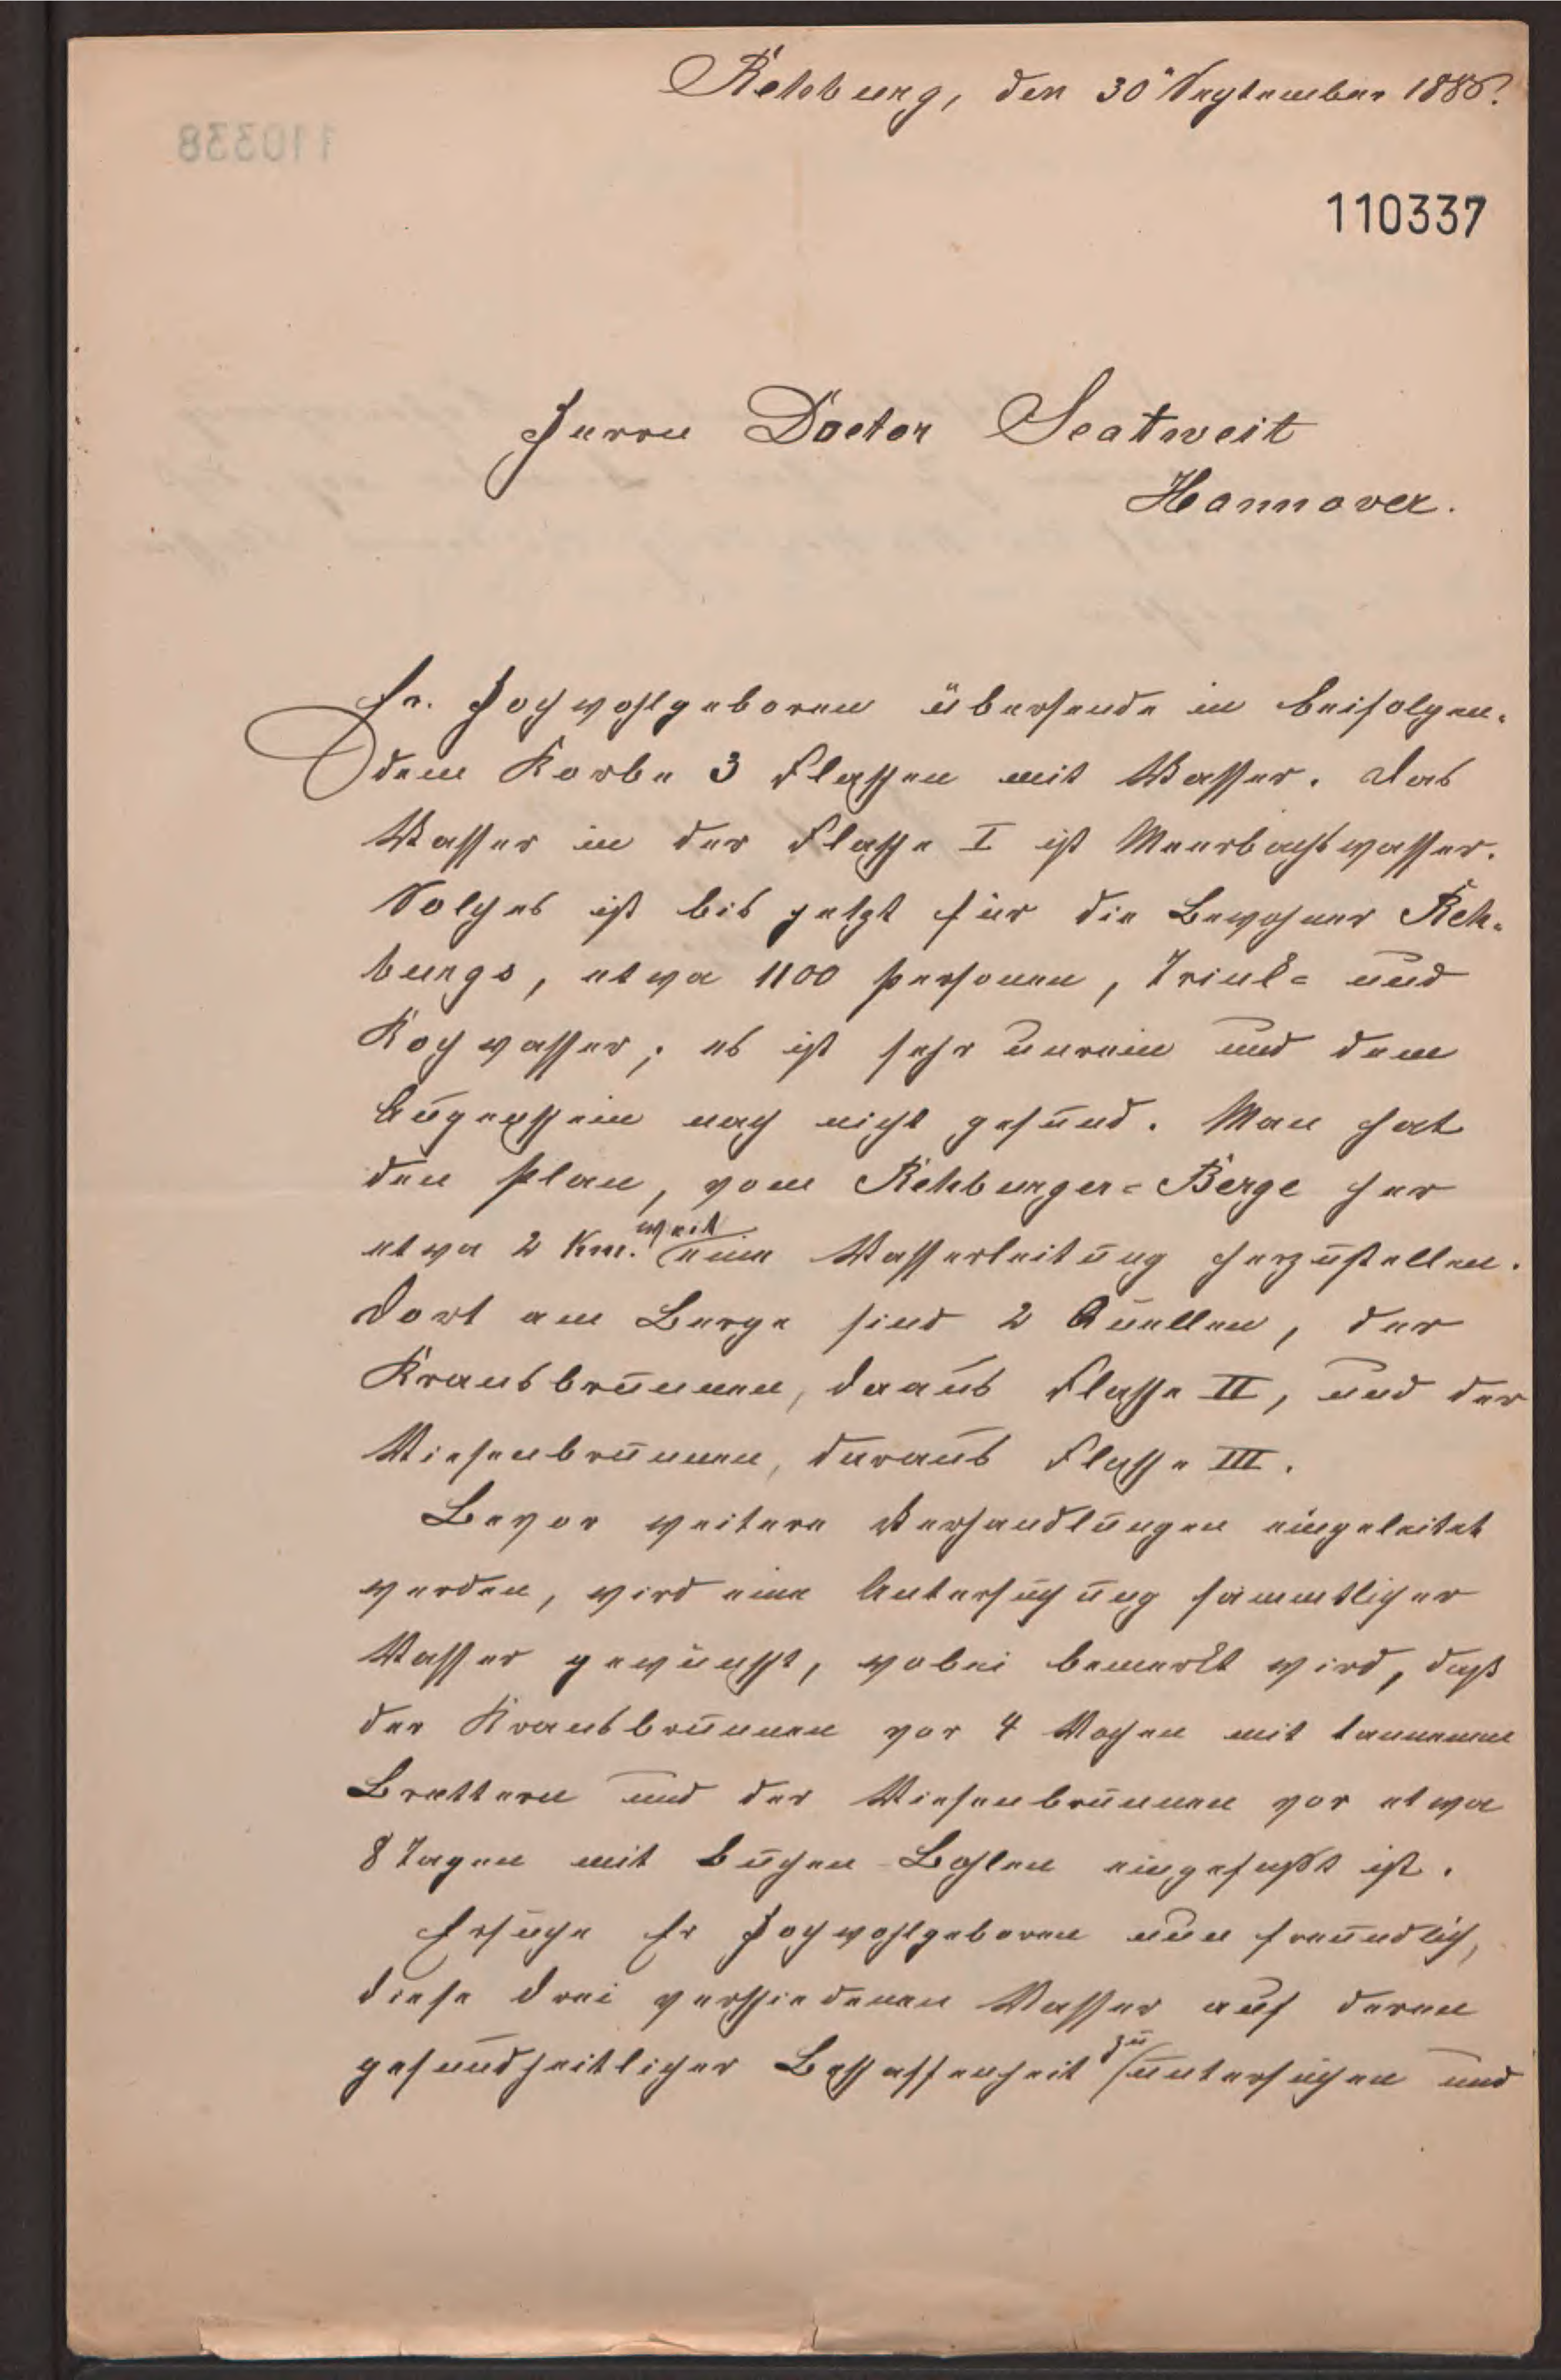 Rehburg, den 30. September 1886.
110337
Herrn Doctor Scatweit
Hannover.
Er. Hochwohlgeboren übersende in beifolgen-
dem Korbe 3 Flaschen mit Wasser. Das
Wasser in der Flasche I ist Meerbachswasser.
Solches ist bis jetzt für die Bewohner Reh-
burgs, etwa 1100 Personen, Trink- und
Kochwasser; es ist sehr unrein und dem
Augenschein nach nicht gesund. Man hat
den Plan, vom Rehburger-Berge her
etwa 2 Km. weit eine Wasserleitung herzustellen.
Dort am Berge sind 2 Quellen, der
Kransbrunnen, daaus Flasche II, und der
Wiesenbrunnen, daraus Flasche III.
Bevor weitere Verhandlungen eingeleitet
werden, wird eine Untersuchung sämmtlicher
Wasser gewünscht, wobei bemerkt wird, daß
der Kransbrunnen vor 4 Wochen mit tannenen
Brettern und der Wiesenbrunnen vor etwa
8 Tagen mit buchen Bohlen eingefaßt ist.
Ersuche Er Hochwohlgeboren nun freundlich,
diese drei verschiedenen Wasser auf deren
gesundheitlicher Beschaffenheit zu untersuchen und